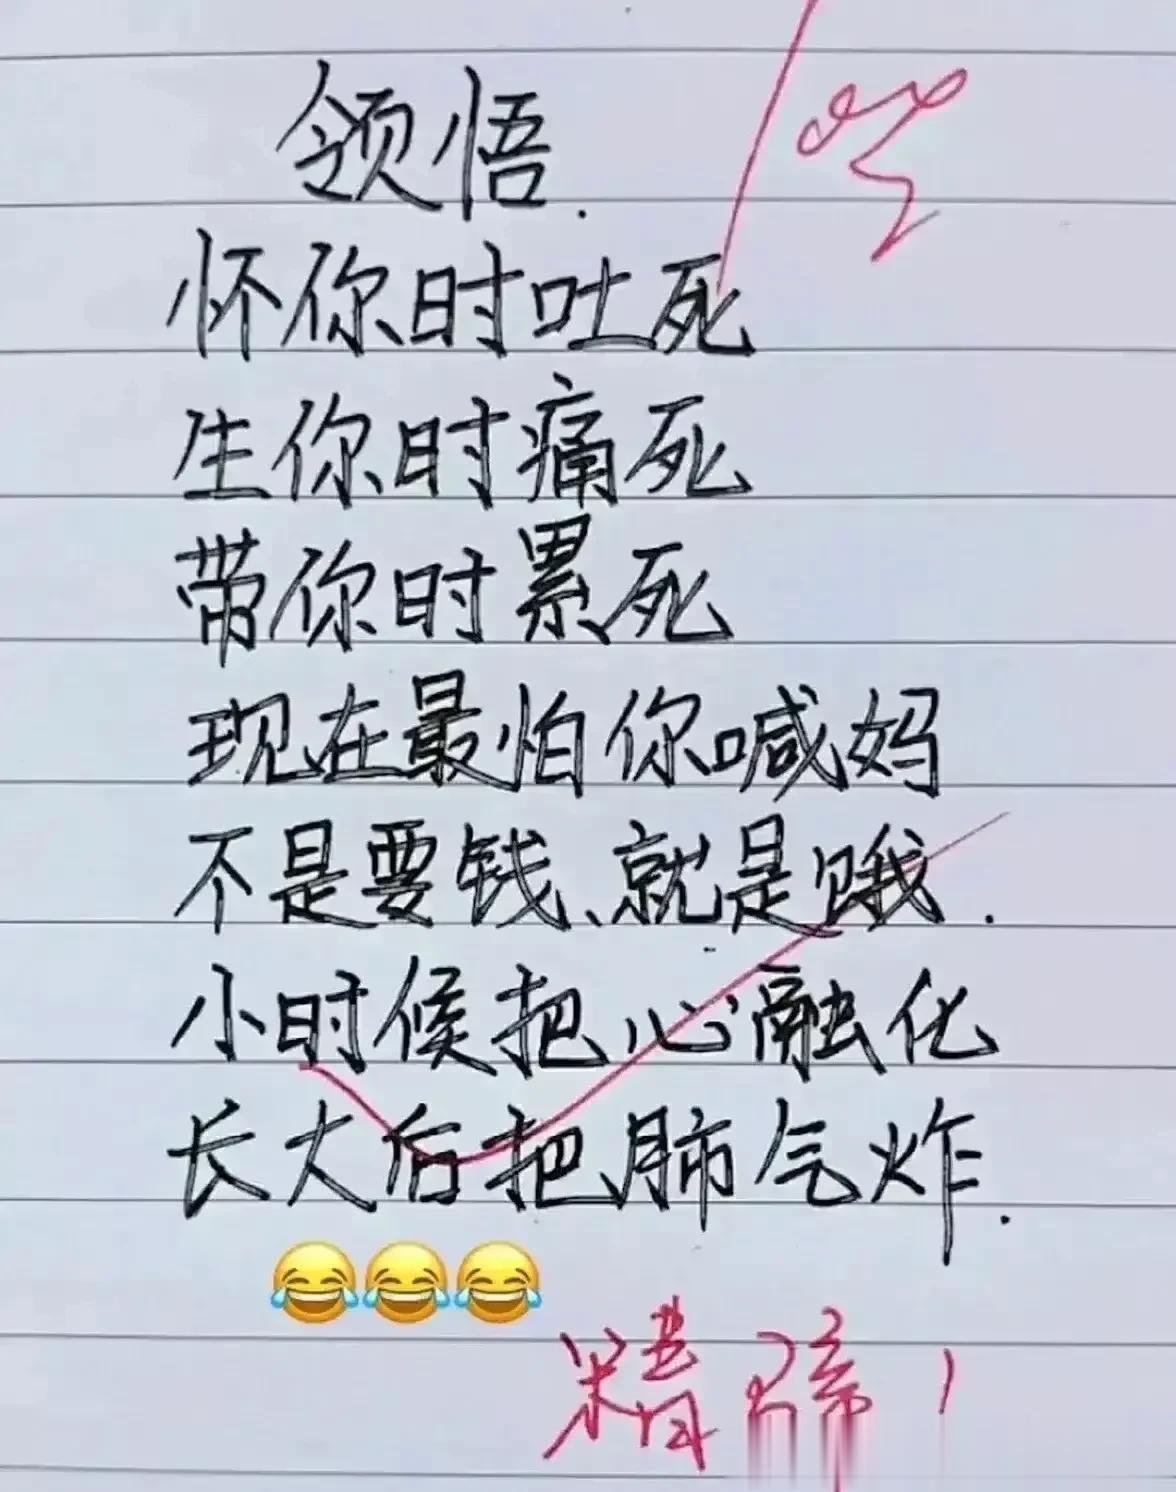 领悟.
怀你时吐死
生你时痛死
带你时累死
现在最怕你喊妈
不是要钱、就是饿.
小时候把心融化
长大后把肺气炸.
😂😂😂
精